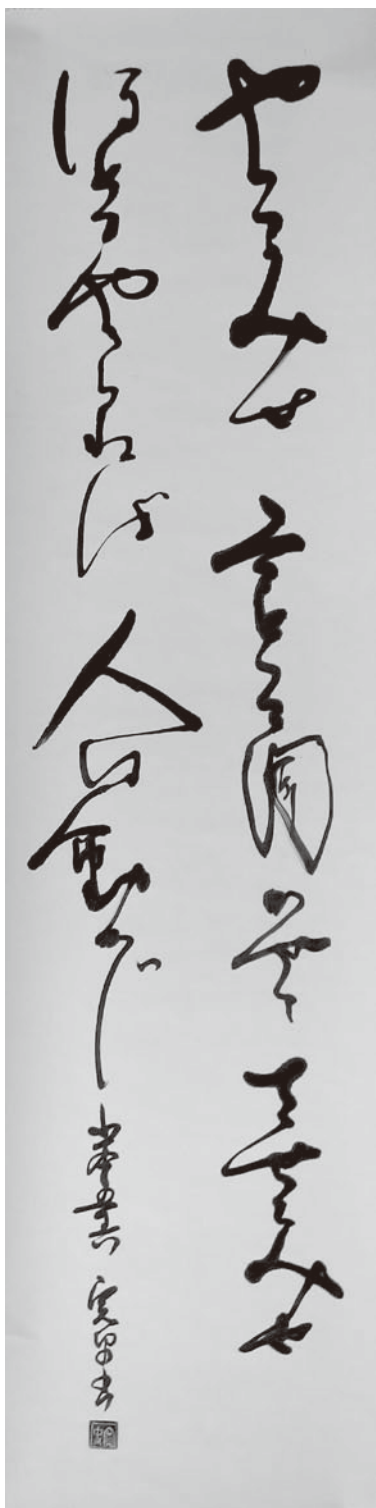 やってみせ 言って聞かせて させてみせ
ほめてやらねば 人は動かじ 山本五十六 書